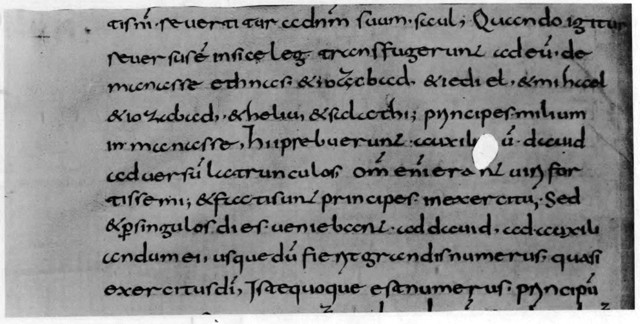 tis nr̄i· reuertitur ad dnm̄ suum· saul; Quando igitur
reuersus ē in siceleg transfugerunt ad eū· de
manasse ethnas· &iozabad· &iediel· &mihael
&iozabad·, &heliu, &salathi; principes· milium
in manasse, hii prebuerunt· auxiliū· dauid
aduersū latrunculos om̄ enī erant uiri for
tissimi; &facti sunt principes· in exercitu; Sed
&ꝑ singulos· dies ueniebant· ad dauid· ad auxili
andum ei, usque dū fieret grandis numerus· quasi
exercitus dī, Iste quoque est numerus· principū